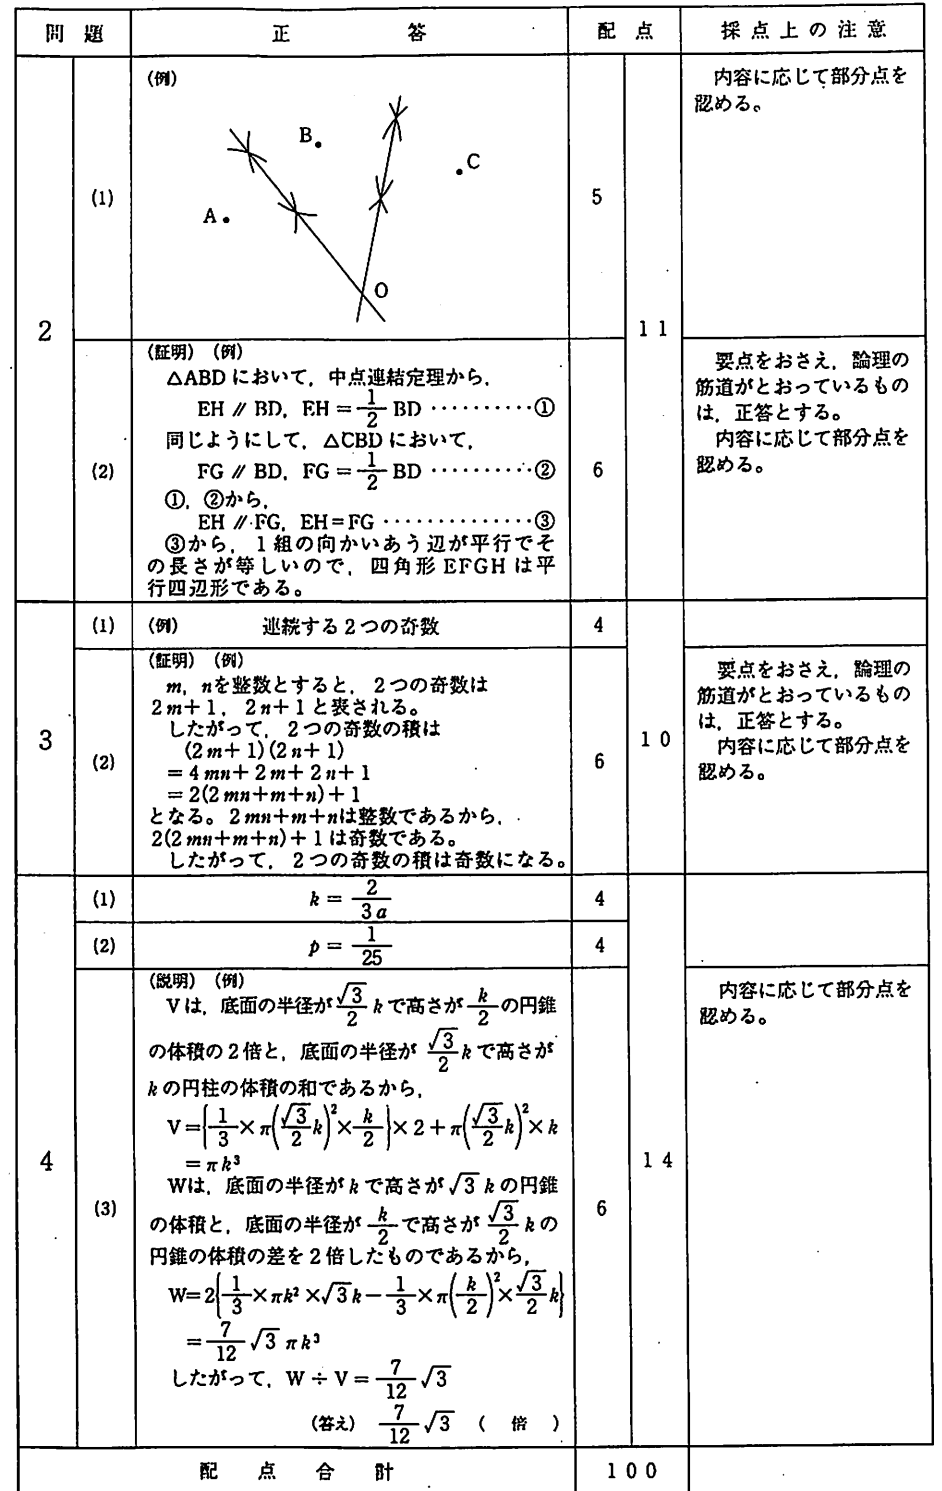 問 題 正 答 配 点 採点上の注意
2
(1)
(例)
B
C
A
O
5
11
内容に応じて部分点を
認める。
(2)
(証明) (例)
△ABD において,中点連結定理から,
EH ∥ BD, EH = 1/2 BD ··········①
同じようにして,△CBD において,
FG ∥ BD, FG = 1/2 BD ··········②
①,②から,
EH ∥ FG, EH=FG ··············③
③から,1組の向かいあう辺が平行でそ
の長さが等しいので,四角形 EFGH は平
行四辺形である。
6
要点をおさえ,論理の
筋道がとおっているもの
は,正答とする。
内容に応じて部分点を
認める。
3
(1)
(例) 連続する2つの奇数
4
10
(2)
(証明) (例)
m, nを整数とすると,2つの奇数は
2m+1, 2n+1と表される。
したがって,2つの奇数の積は
(2m+1)(2n+1)
=4mn+2m+2n+1
=2(2mn+m+n)+1
となる。2mn+m+nは整数であるから,
2(2mn+m+n)+1は奇数である。
したがって,2つの奇数の積は奇数になる。
6
要点をおさえ,論理の
筋道がとおっているもの
は,正答とする。
内容に応じて部分点を
認める。
4
(1)
k = 2/3a
4
14
(2)
p = 1/25
4
(3)
(説明) (例)
Vは,底面の半径が √3/2 k で高さが k/2 の円錐
の体積の2倍と,底面の半径が √3/2 k で高さが
k の円柱の体積の和であるから,
V={1/3×π(√3/2 k)²×k/2}×2+π(√3/2 k)²×k
=πk³
Wは,底面の半径が k で高さが √3 k の円錐
の体積と,底面の半径が k/2 で高さが √3/2 k の
円錐の体積の差を2倍したものであるから,
W=2{1/3×πk²×√3k−1/3×π(k/2)²×√3/2 k}
=7/12 √3 πk³
したがって,W÷V=7/12 √3
(答え) 7/12 √3 ( 倍 )
6
内容に応じて部分点を
認める。
配 点 合 計 100